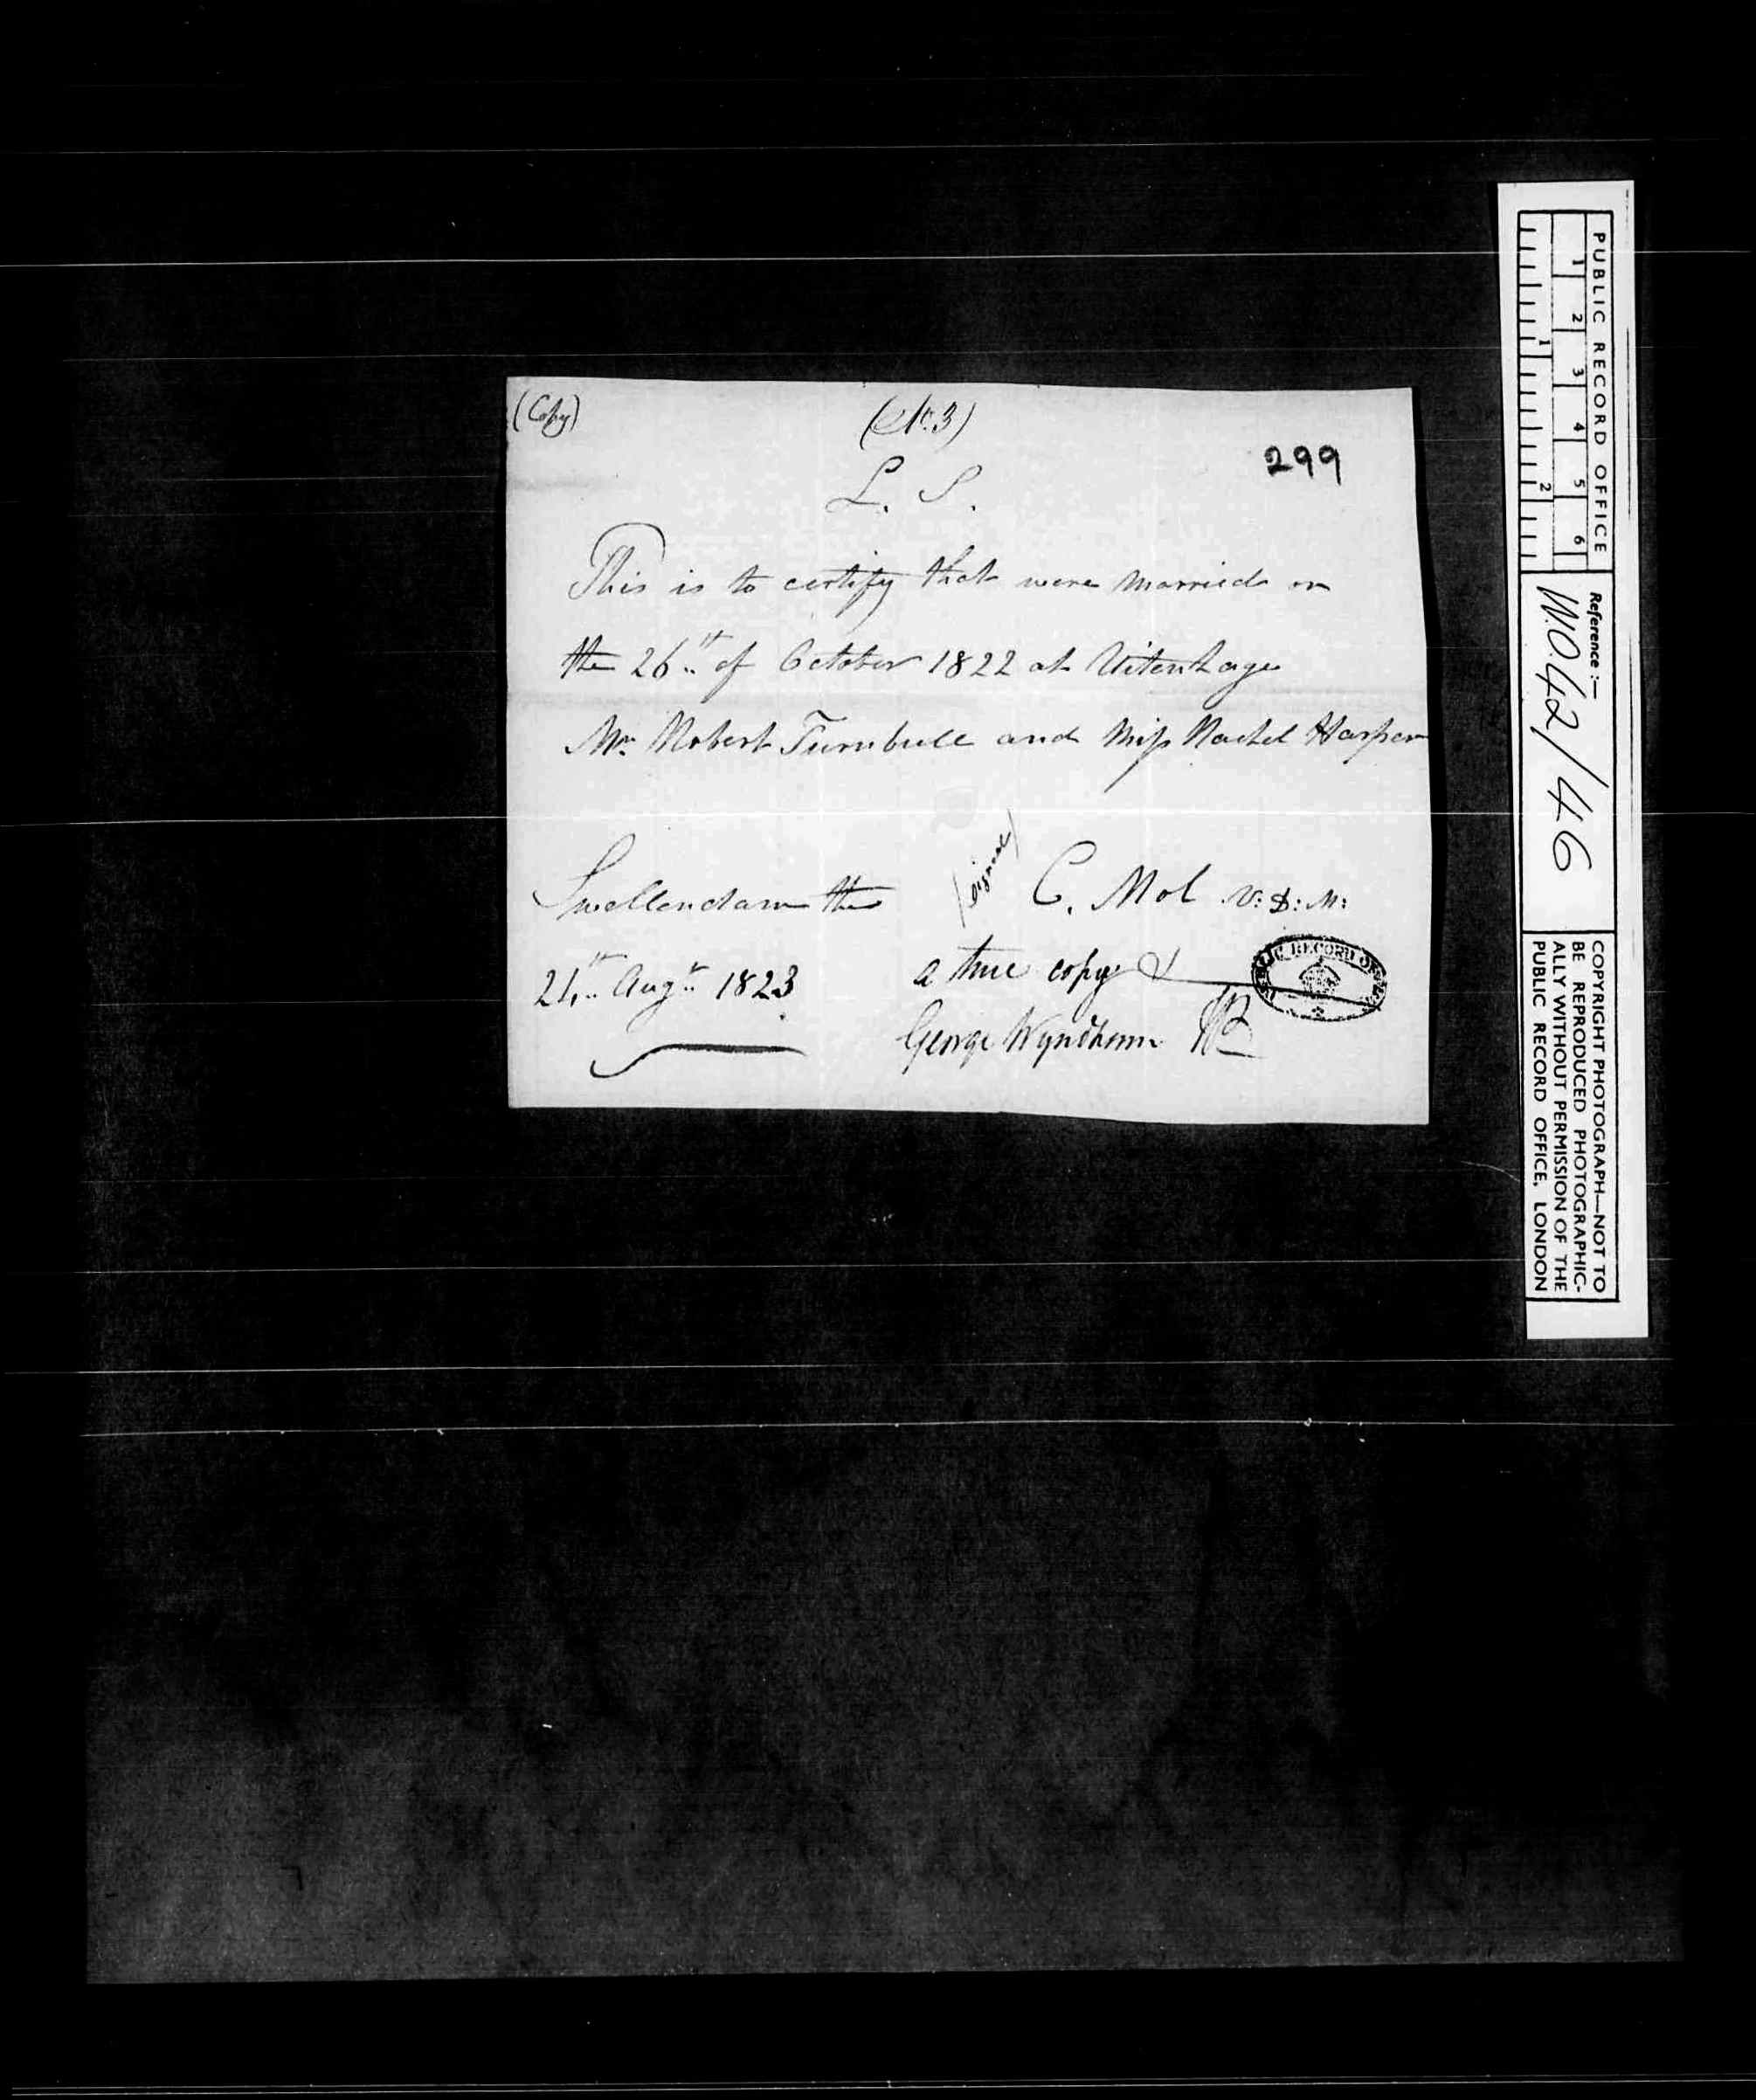 (Copy)
(No. 3)
299
L. S.
This is to certify that were married on
the 26th of October 1822 at Uitenhage
Mr. Robert Turnbull and Miss Rachel Harper
(signed) C. Mol V: D: M:
Swellendam the
24th Augt 1823
a true copy
George Wyndham
PUBLIC RECORD OFFICE
PUBLIC RECORD OFFICE
1 2 3 4 5 6
1 2
Reference :-
W.O. 42/46
COPYRIGHT PHOTOGRAPH—NOT TO
BE REPRODUCED PHOTOGRAPHIC-
ALLY WITHOUT PERMISSION OF THE
PUBLIC RECORD OFFICE, LONDON